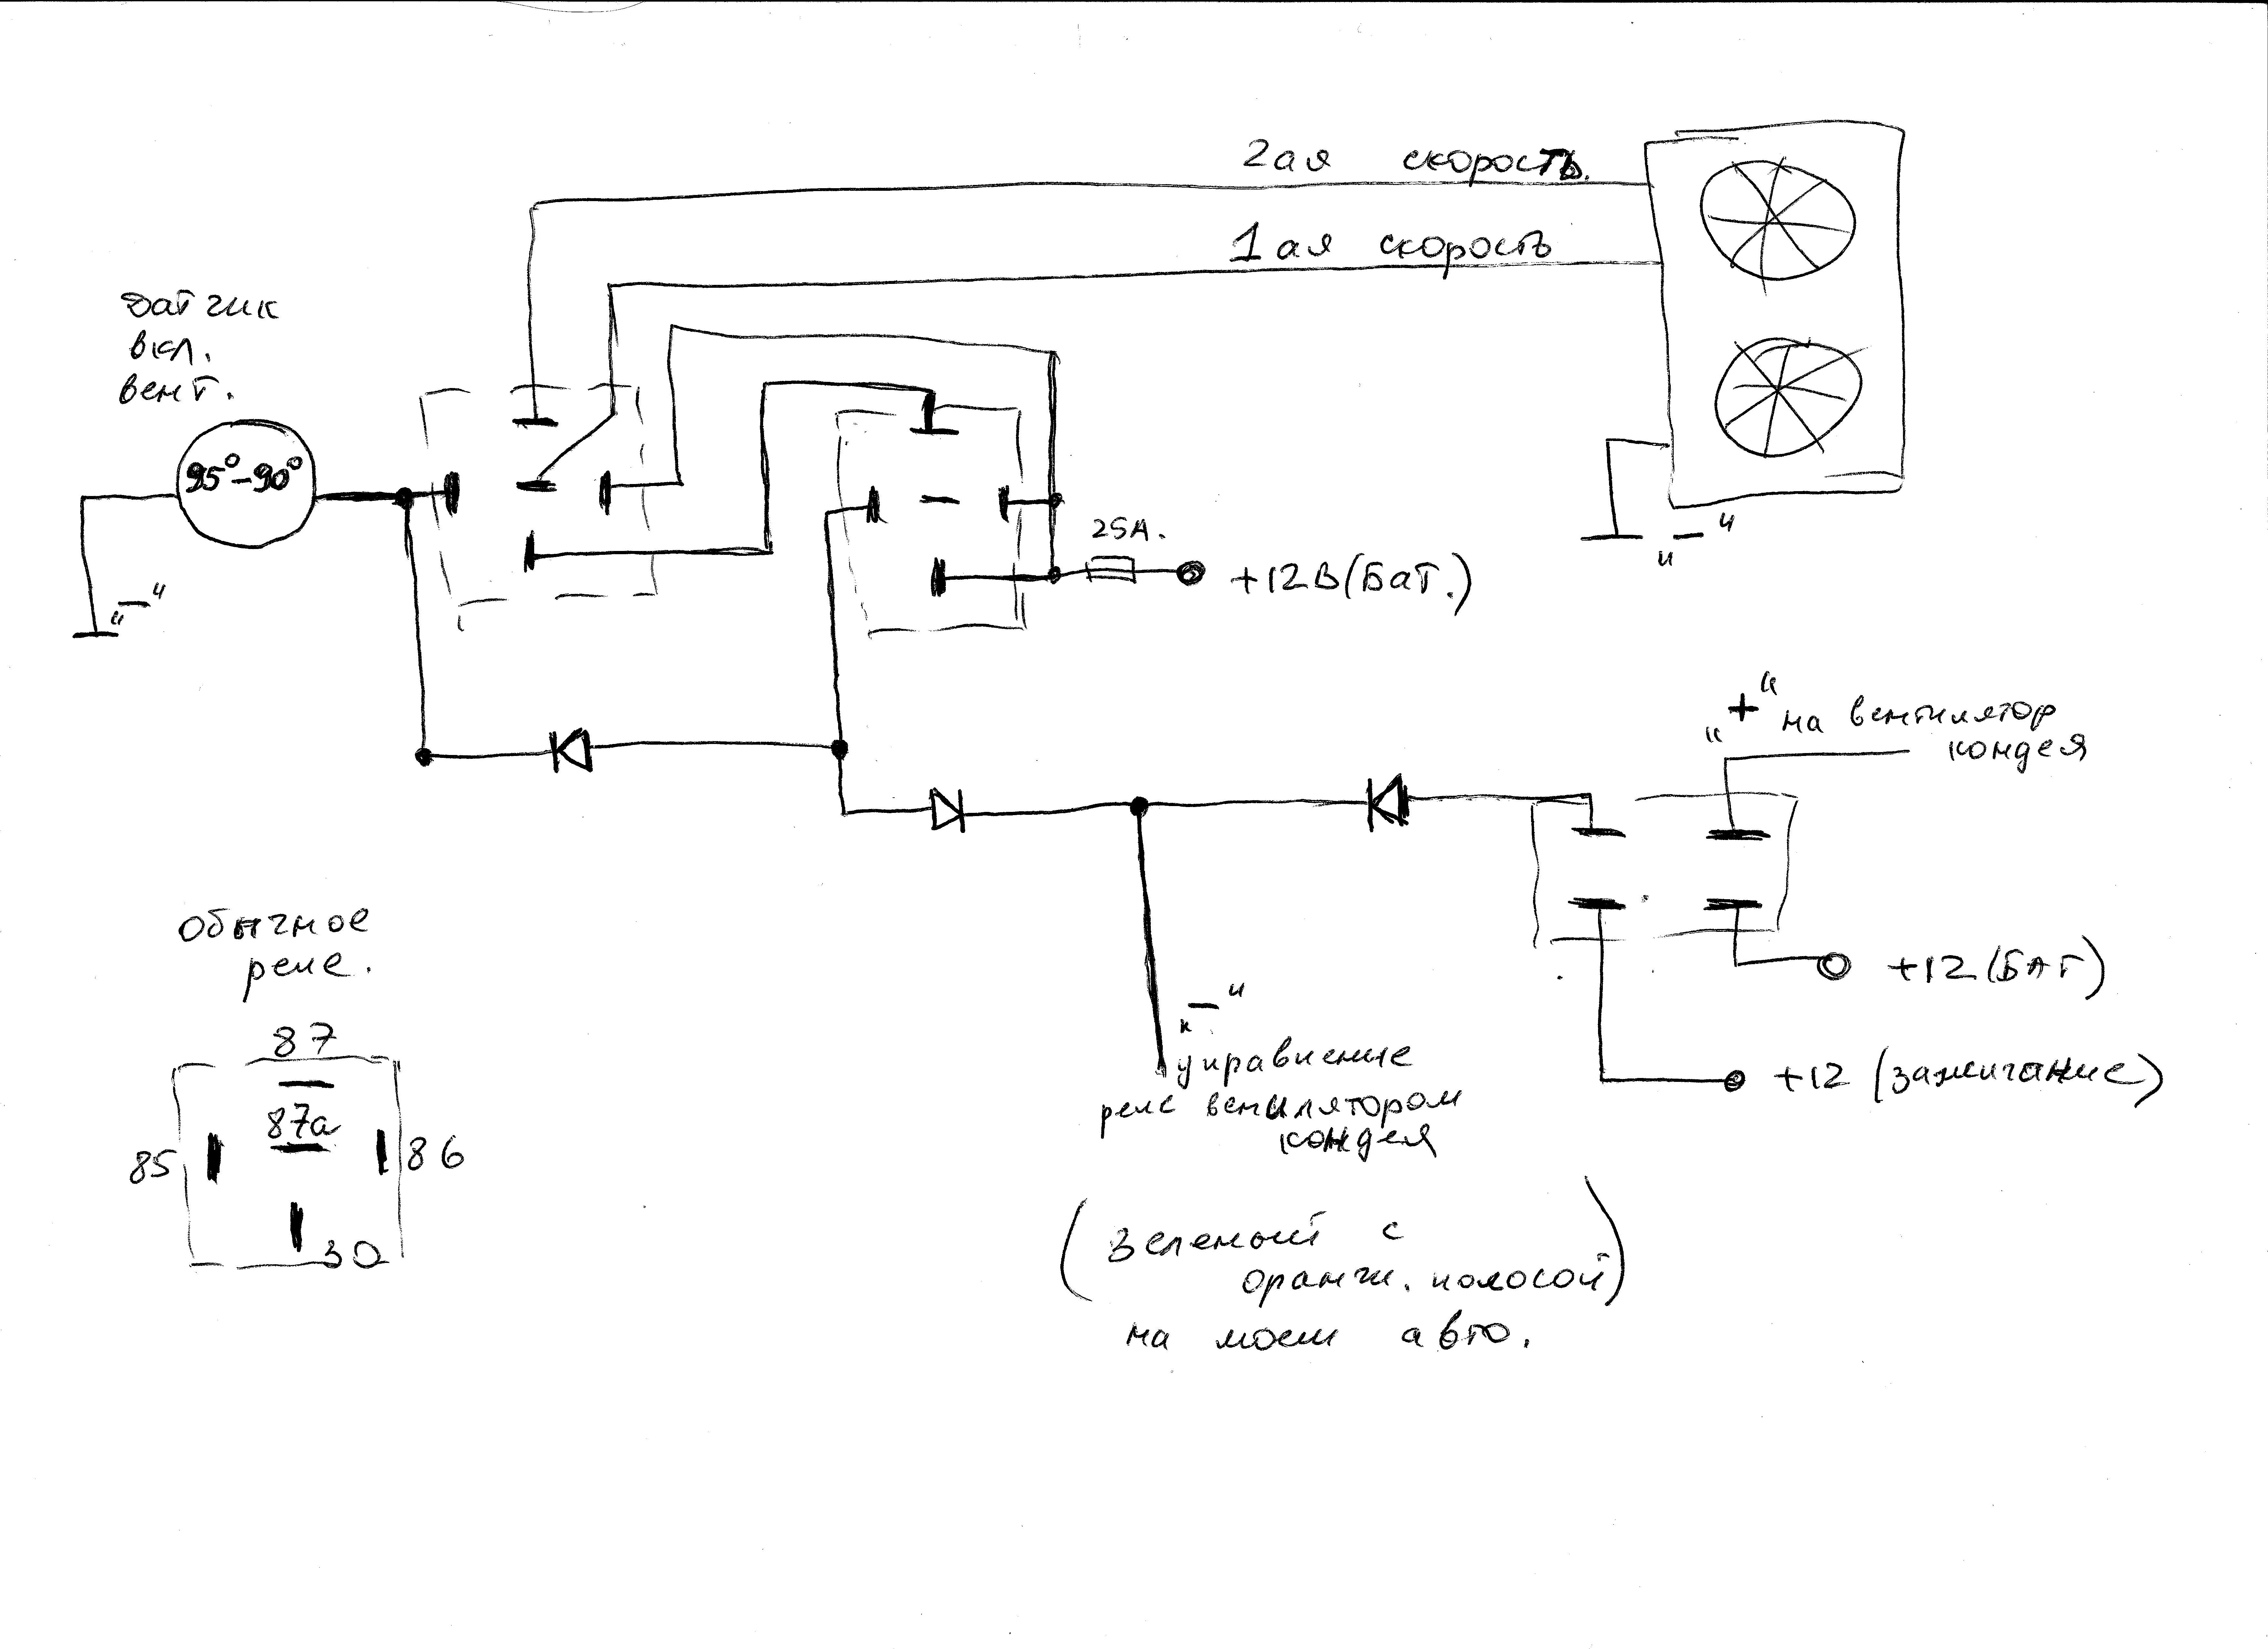 2ая скорость.
1ая скорость
датчик
вкл.
вент.
95°-90°
"-"
25А.
+12В(Бат.)
"-"
"+" на вентилятор
кондея
+12(БАТ)
+12 (зажигание)
"-"
управление
реле венилятором
кондея
(зеленый с
оранж. полосой)
на моем авто.
Обычное
реле.
87
87а
85
86
30